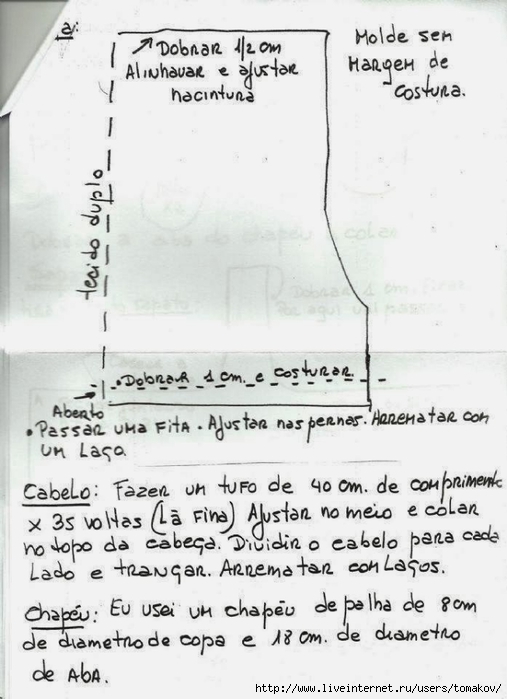 a:
Dobrar 1/2 cm
Alinhavar e ajustar
nacintura
Molde sem
Margem de
costura.
tecido duplo
.Dobrar 1 cm. e costurar.
Aberto
• Passar uma fita. Ajustar nas pernas. Arrematar com
um Laço.
Cabelo: Fazer un tufo de 40 cm. de comprimento
x 35 voltas (Lã Fina) Ajustar no meio e colar
no topo da cabeça. Dividir o cabelo para cada
Lado e trançar. Arrematar com Laços.
Chapéu: Eu usei un chapéu de palha de 8cm
de diametro de copa e 18 cm. de diametro
de ABA.
http://www.liveinternet.ru/users/tomakov/